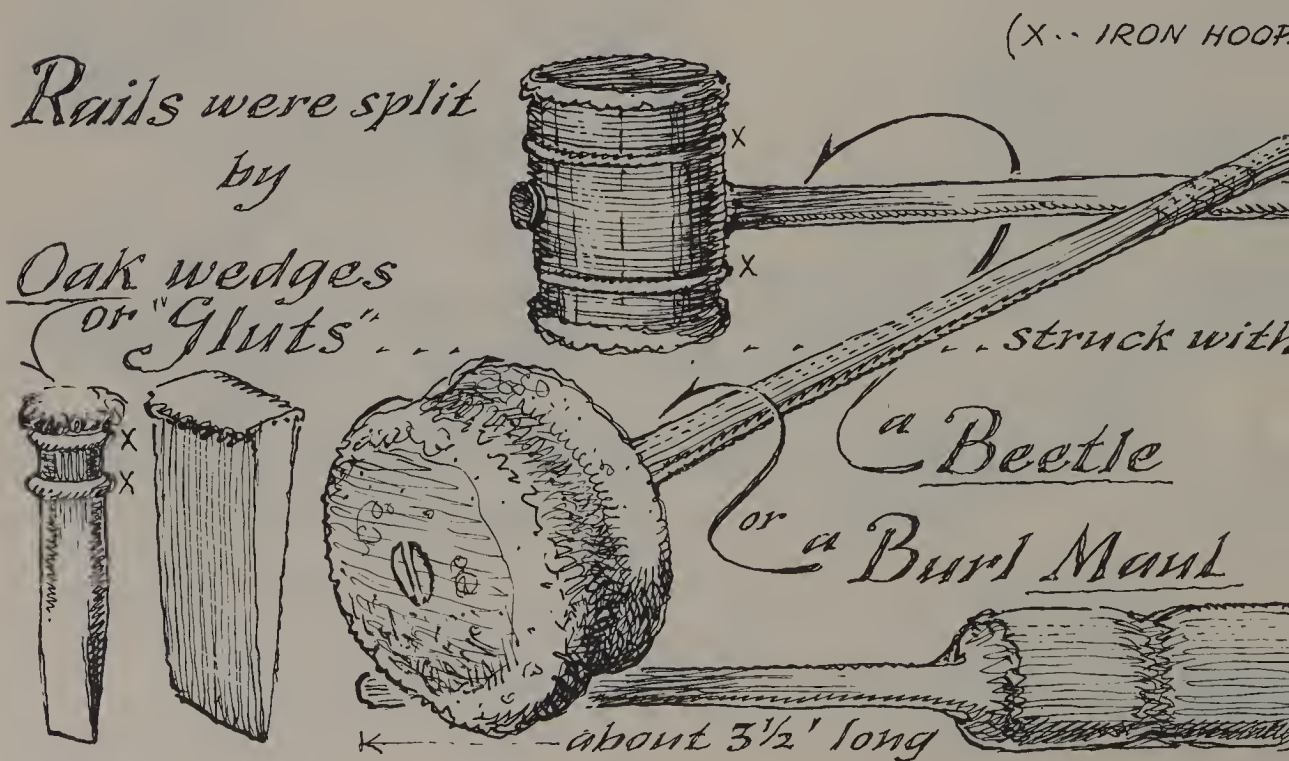 (X.. IRON HOOP
Rails were split
by
X
X
Oak wedges
or "Gluts" . . . . . . . . struck with
X
X
a Beetle
or a Burl Maul
about 3½' long